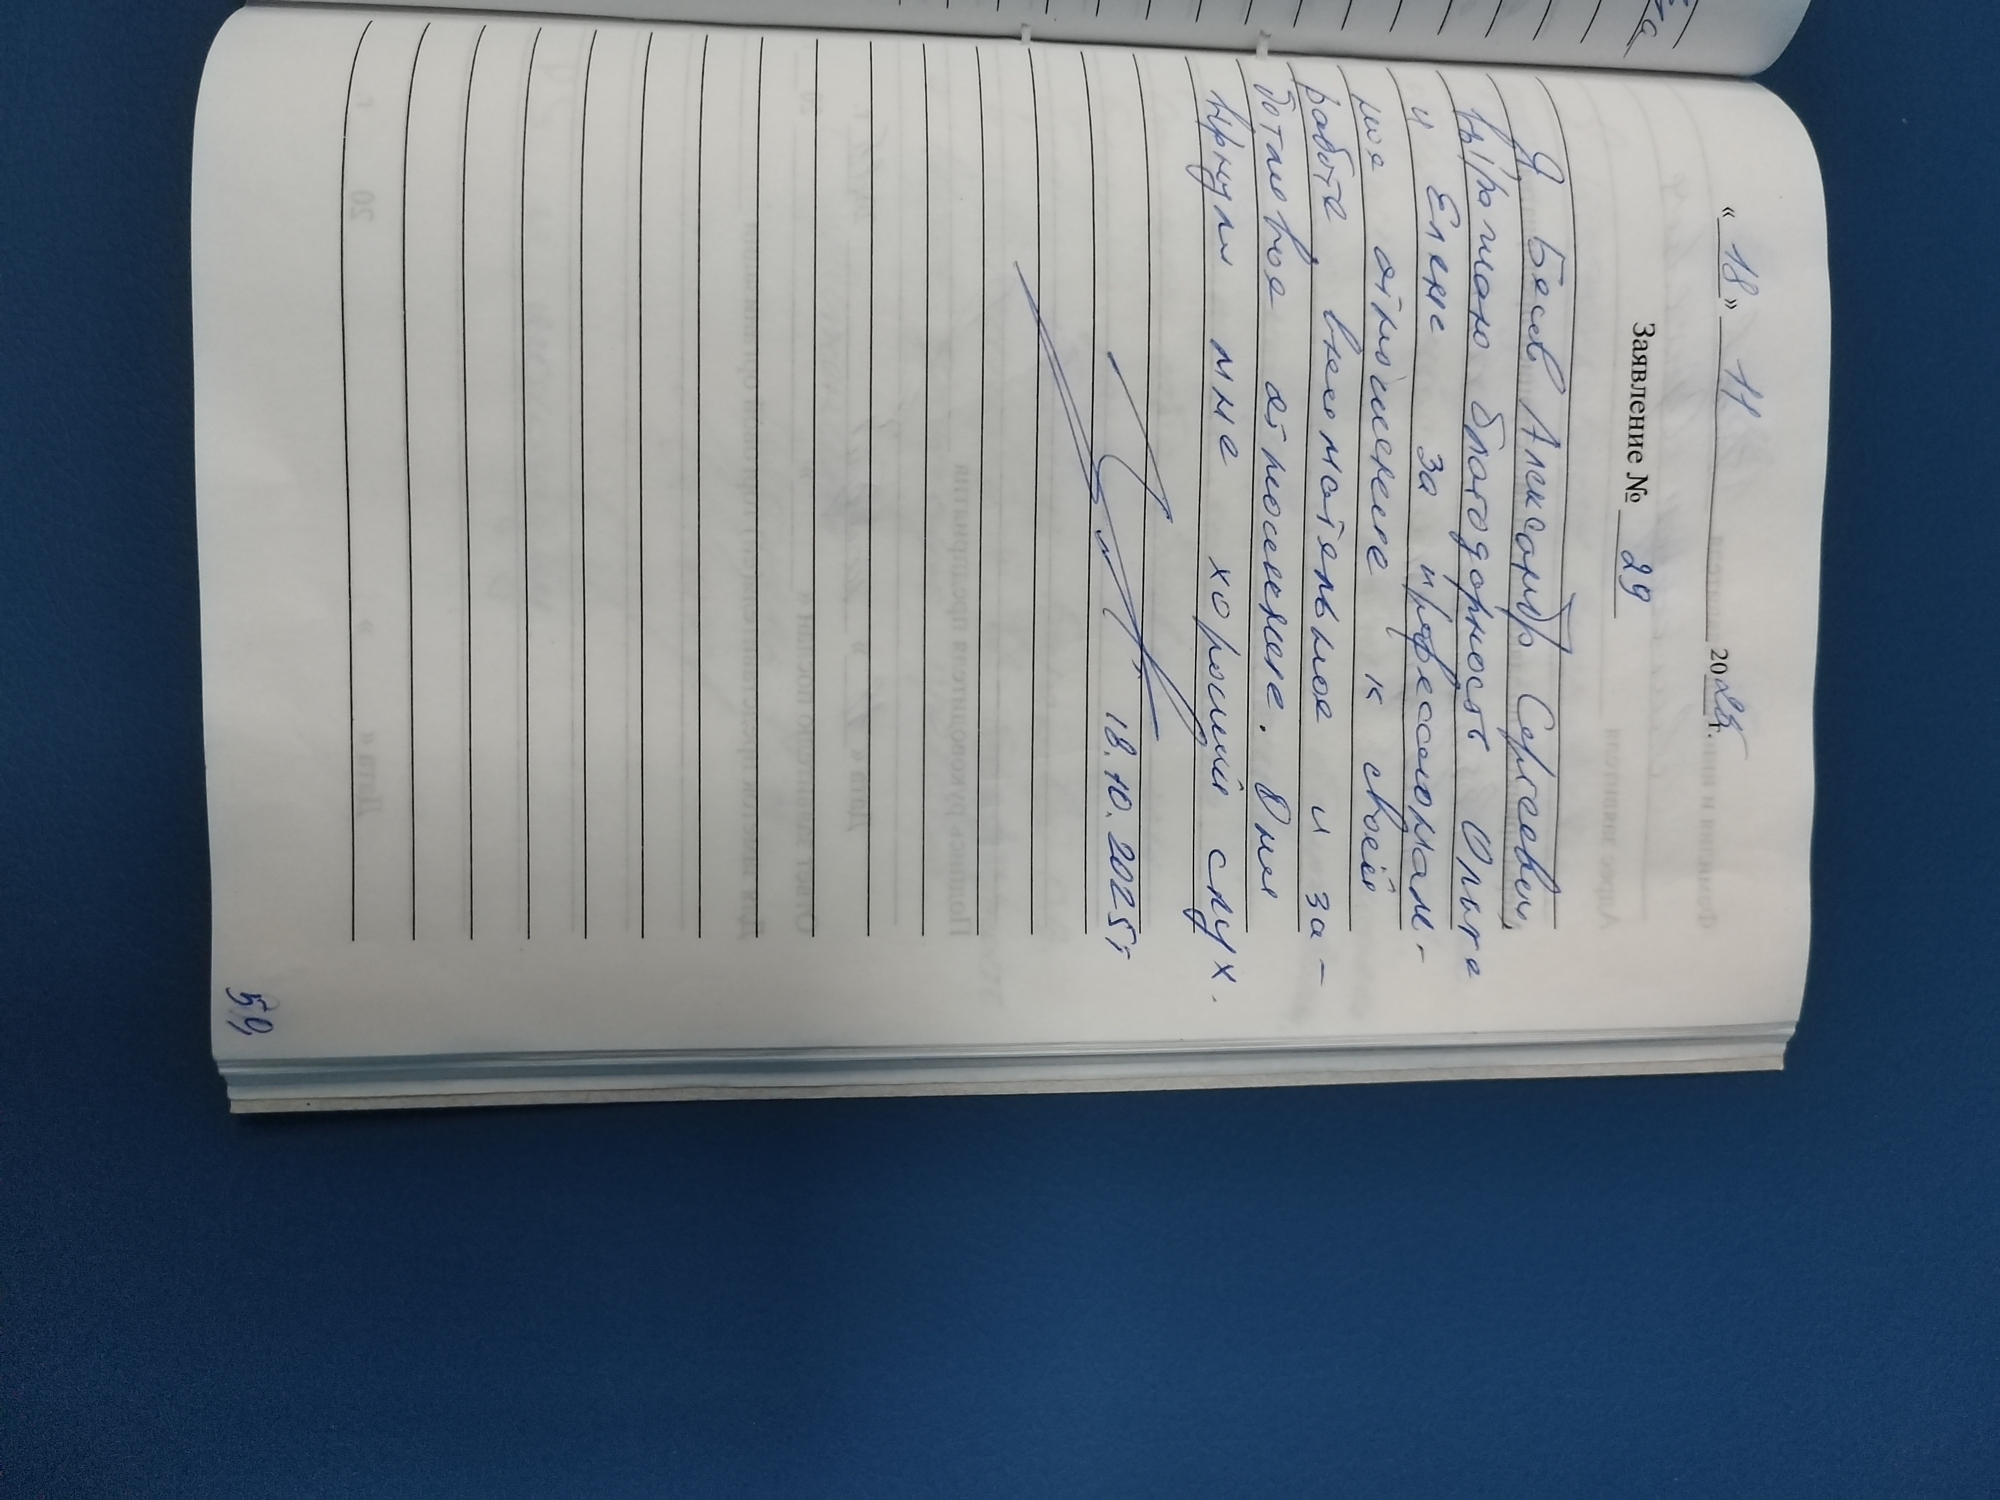 « 18 » 11 2025 г.
Заявление № 29
Я Бесов Александр Сергеевич,
выражаю благодарность Ольге
и Елене за профессиональ-
ное отношение к своей
работе, внимательное и за-
ботливое отношение. Они
вернули мне хороший слух.
18.10.2025г.
59